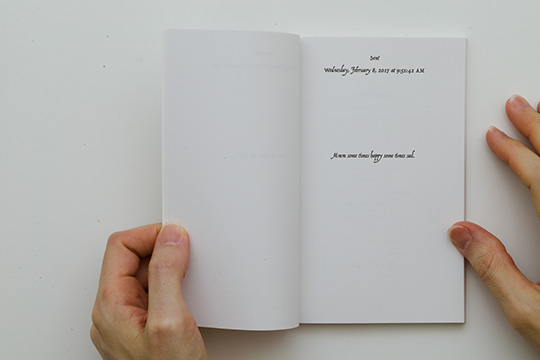 Sent
Wednesday, February 8, 2017 at 9:52:42 AM
Mmm some times happy some times sad.